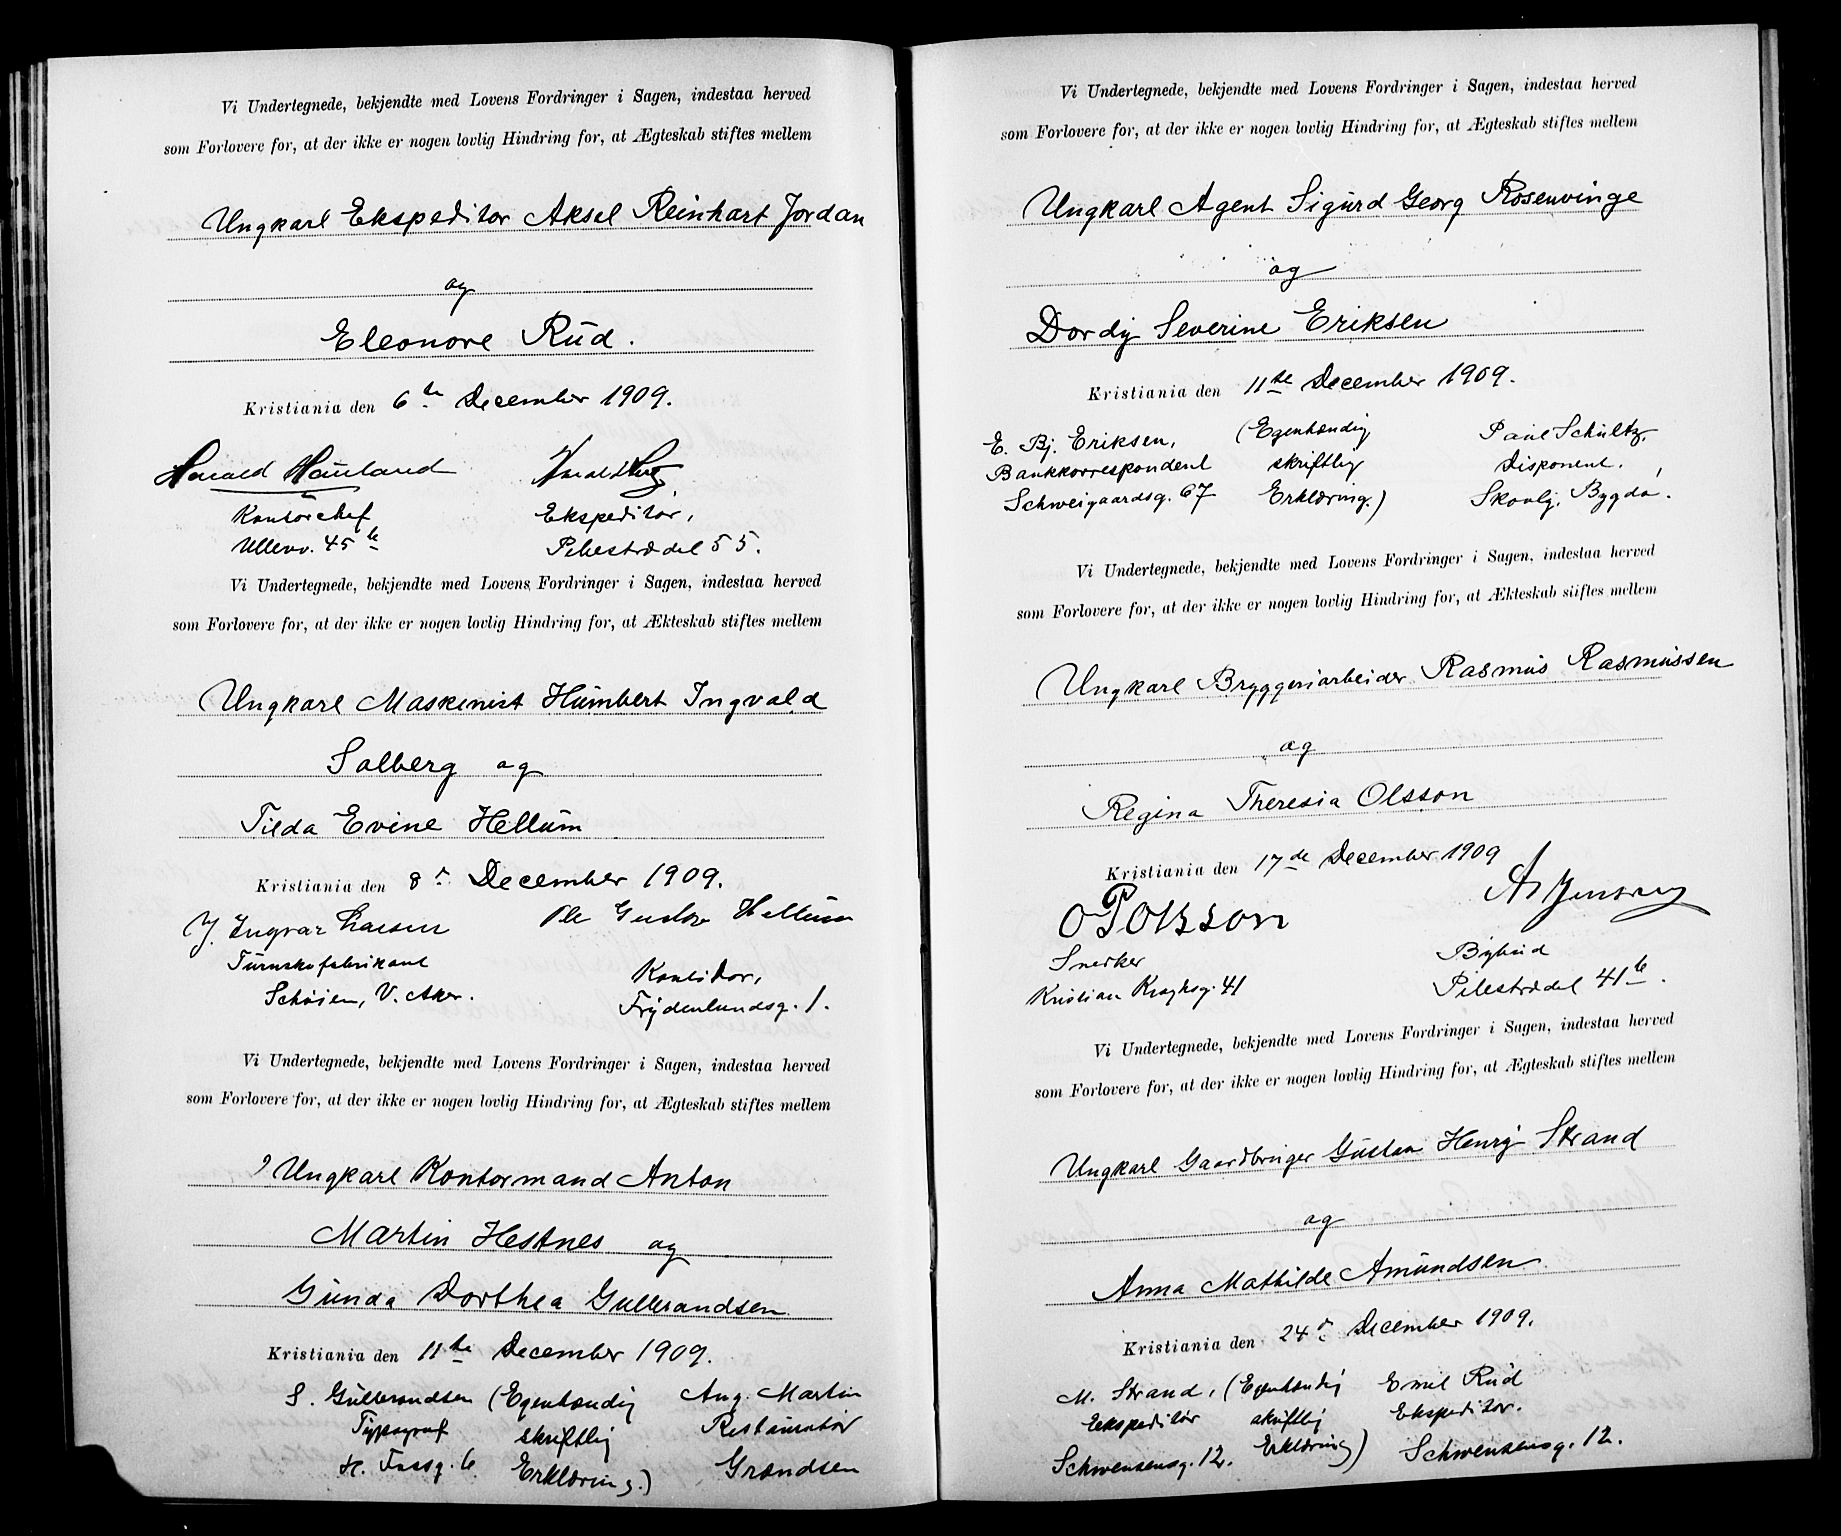 Vi Undertegnede, bekjendte med Lovens Fordringer i Sagen, indestaa herved
som Forlovere for, at der ikke er nogen lovlig Hindring for, at Ægteskab stiftes mellem
Ungkarl Ekspeditor Aksel Reinhart Jordan
og
Eleonore Rud.
Kristiania den 6te December 1909.
Harald Hauland
Kontorchef
Ullevv. 45b
Harald
Ekspeditor,
Pilestrædet 55.
Vi Undertegnede, bekjendte med Lovens Fordringer i Sagen, indestaa herved
som Forlovere for, at der ikke er nogen lovlig Hindring for, at Ækteskab stiftes mellem
Ungkarl Maskinist Humbert Ingvald
Solberg og
Tilda Evine Hellum
Kristiania den 8de December 1909.
J. Ingvar Larsen
Turnskofabrikant
Schøien, V. Aker.
Ole Gustav Hellum
Kontidor,
Frydenlundsg. 1.
Vi Undertegnede, bekjendte med Lovens Fordringer i Sagen, indestaa herved
som Forlovere for, at der ikke er nogen lovlig Hindring for, at Ægteskab stiftes mellem
Ungkarl Kontormand Anton
Martin Hestnes og
Gunda Dorthea Gulbrandsen
Kristiania den 11te December 1909.
S. Gulbrandsen (Egenhændig Aug. Martin
Typograf skriftlig Restauratør
H. Fossg. 6 Erklæring.) Grændsen
Vi Undertegnede, bekjendte med Lovens Fordringer i Sagen, indestaa herved
som Forlovere for, at der ikke er nogen lovlig Hindring for, at Ægteskab stiftes mellem
Ungkarl Agent Sigurd Georg Rosenvinge
og
Dordy Severine Eriksen
Kristiania den 11te December 1909.
E. Bj. Eriksen, (Egenhændig Paul Schultz,
Bankkorrespondent skriftlig Disponent.
Schweigaardsg. 67 Erklæring.) Skovly, Bygdø.
Vi Undertegnede, bekjendte med Lovens Fordringer i Sagen, indestaa herved
som Forlovere for, at der ikke er nogen lovlig Hindring for, at Ækteskab stiftes mellem
Ungkarl Bryggeriarbeider Rasmus Rasmussen
og
Regina Theresia Olsson
Kristiania den 17de December 1909
O P Olsson
Snedker
Kristian Kroghsg. 41
A Jensen
Bybud
Pilestrædet 41b.
Vi Undertegnede, bekjendte med Lovens Fordringer i Sagen, indestaa herved
som Forlovere for, at der ikke er nogen lovlig Hindring for, at Ægteskab stiftes mellem
Ungkarl Gaardbruger Gustav Henry Strand
og
Anna Mathilde Amundsen
Kristiania den 24de December 1909.
M. Strand, (Egenhændig Emil Rud
Ekspeditør skriftlig Ekspeditor.
Schwensensg. 12. Erklæring) Schwensensg. 12.